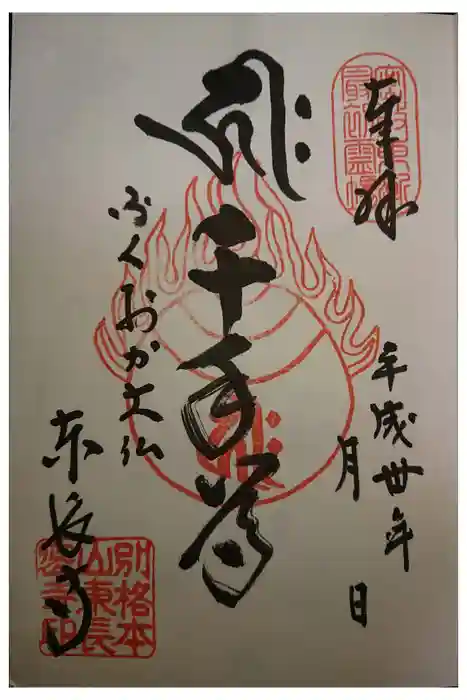 奉拝
平成卅年
月
日
千手尊
ふくおか大仏
東長寺
別格本
山東長
密寺印